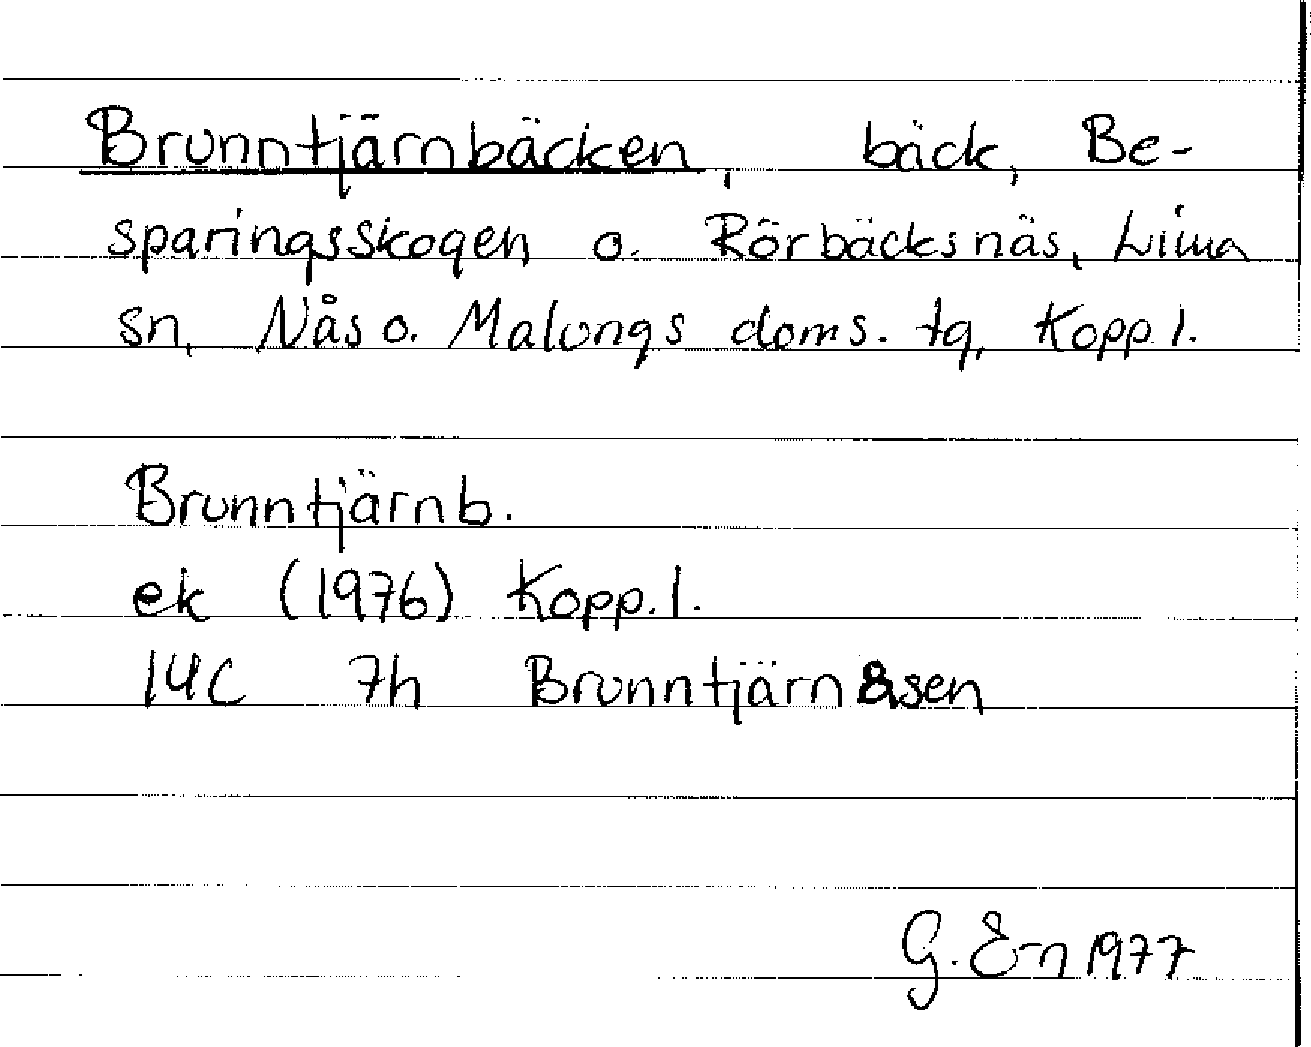 Brunntjärnbäcken, bäck, Be-
sparingsskogen o. Rörbäcksnäs, Lima
sn, Nås o. Malungs doms. tg, Kopp. l.
Brunntjärnb.
ek (1976) Kopp. l.
14C 7h Brunntjärnåsen
G. E-n 1977